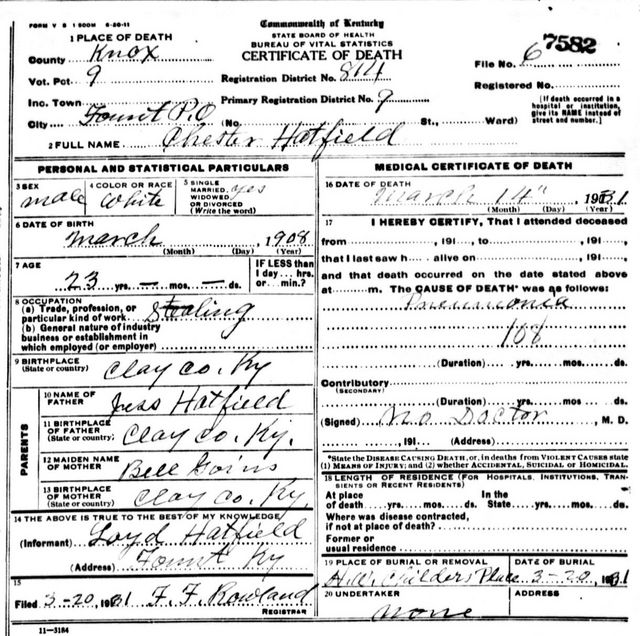 FORM V S 1 500M 6-20-11
Commonwealth of Kentucky
STATE BOARD OF HEALTH
BUREAU OF VITAL STATISTICS
CERTIFICATE OF DEATH
1 PLACE OF DEATH
County Knox
Vot. Pct. 9
Inc. Town
City Fount P.O
Registration District No. 814
Primary Registration District No. 9
(No. St., Ward)
File No. 6 7582
Registered No.
[If death occurred in a
hospital or institution,
give its NAME instead of
street and number.]
2 FULL NAME Chester Hatfield
PERSONAL AND STATISTICAL PARTICULARS
3 SEX
male
4 COLOR OR RACE
White
5 SINGLE
MARRIED, yes
WIDOWED
OR DIVORCED
(Write the word)
6 DATE OF BIRTH
March , 1908
(Month) (Day) (Year)
7 AGE
23 yrs. — mos. — ds.
IF LESS than
1 day... hrs.
or ... min.?
8 OCCUPATION
(a) Trade, profession, or
particular kind of work
(b) General nature of industry
business or establishment in
which employed (or employer)
9 BIRTHPLACE
(State or country) Clay Co. Ky
PARENTS
10 NAME OF
FATHER Jess Hatfield
11 BIRTHPLACE
OF FATHER
(State or country) Clay Co. Ky.
12 MAIDEN NAME
OF MOTHER Bell Goins
13 BIRTHPLACE
OF MOTHER
(State or country) Clay Co. Ky.
14 THE ABOVE IS TRUE TO THE BEST OF MY KNOWLEDGE
(Informant) Loyd Hatfield
(Address) Fount Ky
15
Filed 3-20, 1931 F. F. Rowland
REGISTRAR
11-3184
MEDICAL CERTIFICATE OF DEATH
16 DATE OF DEATH
March 14" 1931
(Month) (Day) (Year)
17 I HEREBY CERTIFY, That I attended deceased
from , 191 , to , 191 ,
that I last saw h alive on , 191 ,
and that death occurred on the date stated above
at m. The CAUSE OF DEATH* was as follows:
Pneumonia
108
(Duration) yrs. mos. ds.
Contributory
(SECONDARY)
(Duration) yrs. mos. ds.
(Signed) No Doctor , M. D.
, 191 (Address)
*State the DISEASE CAUSING DEATH, or, in deaths from VIOLENT CAUSES state
(1) MEANS OF INJURY; and (2) whether ACCIDENTAL, SUICIDAL OR HOMICIDAL.
18 LENGTH OF RESIDENCE (FOR HOSPITALS, INSTITUTIONS, TRAN-
SIENTS OR RECENT RESIDENTS)
At place
of death yrs. mos. ds.
In the
State yrs. mos. ds.
Where was disease contracted,
if not at place of death?
Former or
usual residence
19 PLACE OF BURIAL OR REMOVAL
Childers Place
DATE OF BURIAL
3-20, 1931
20 UNDERTAKER
none
ADDRESS